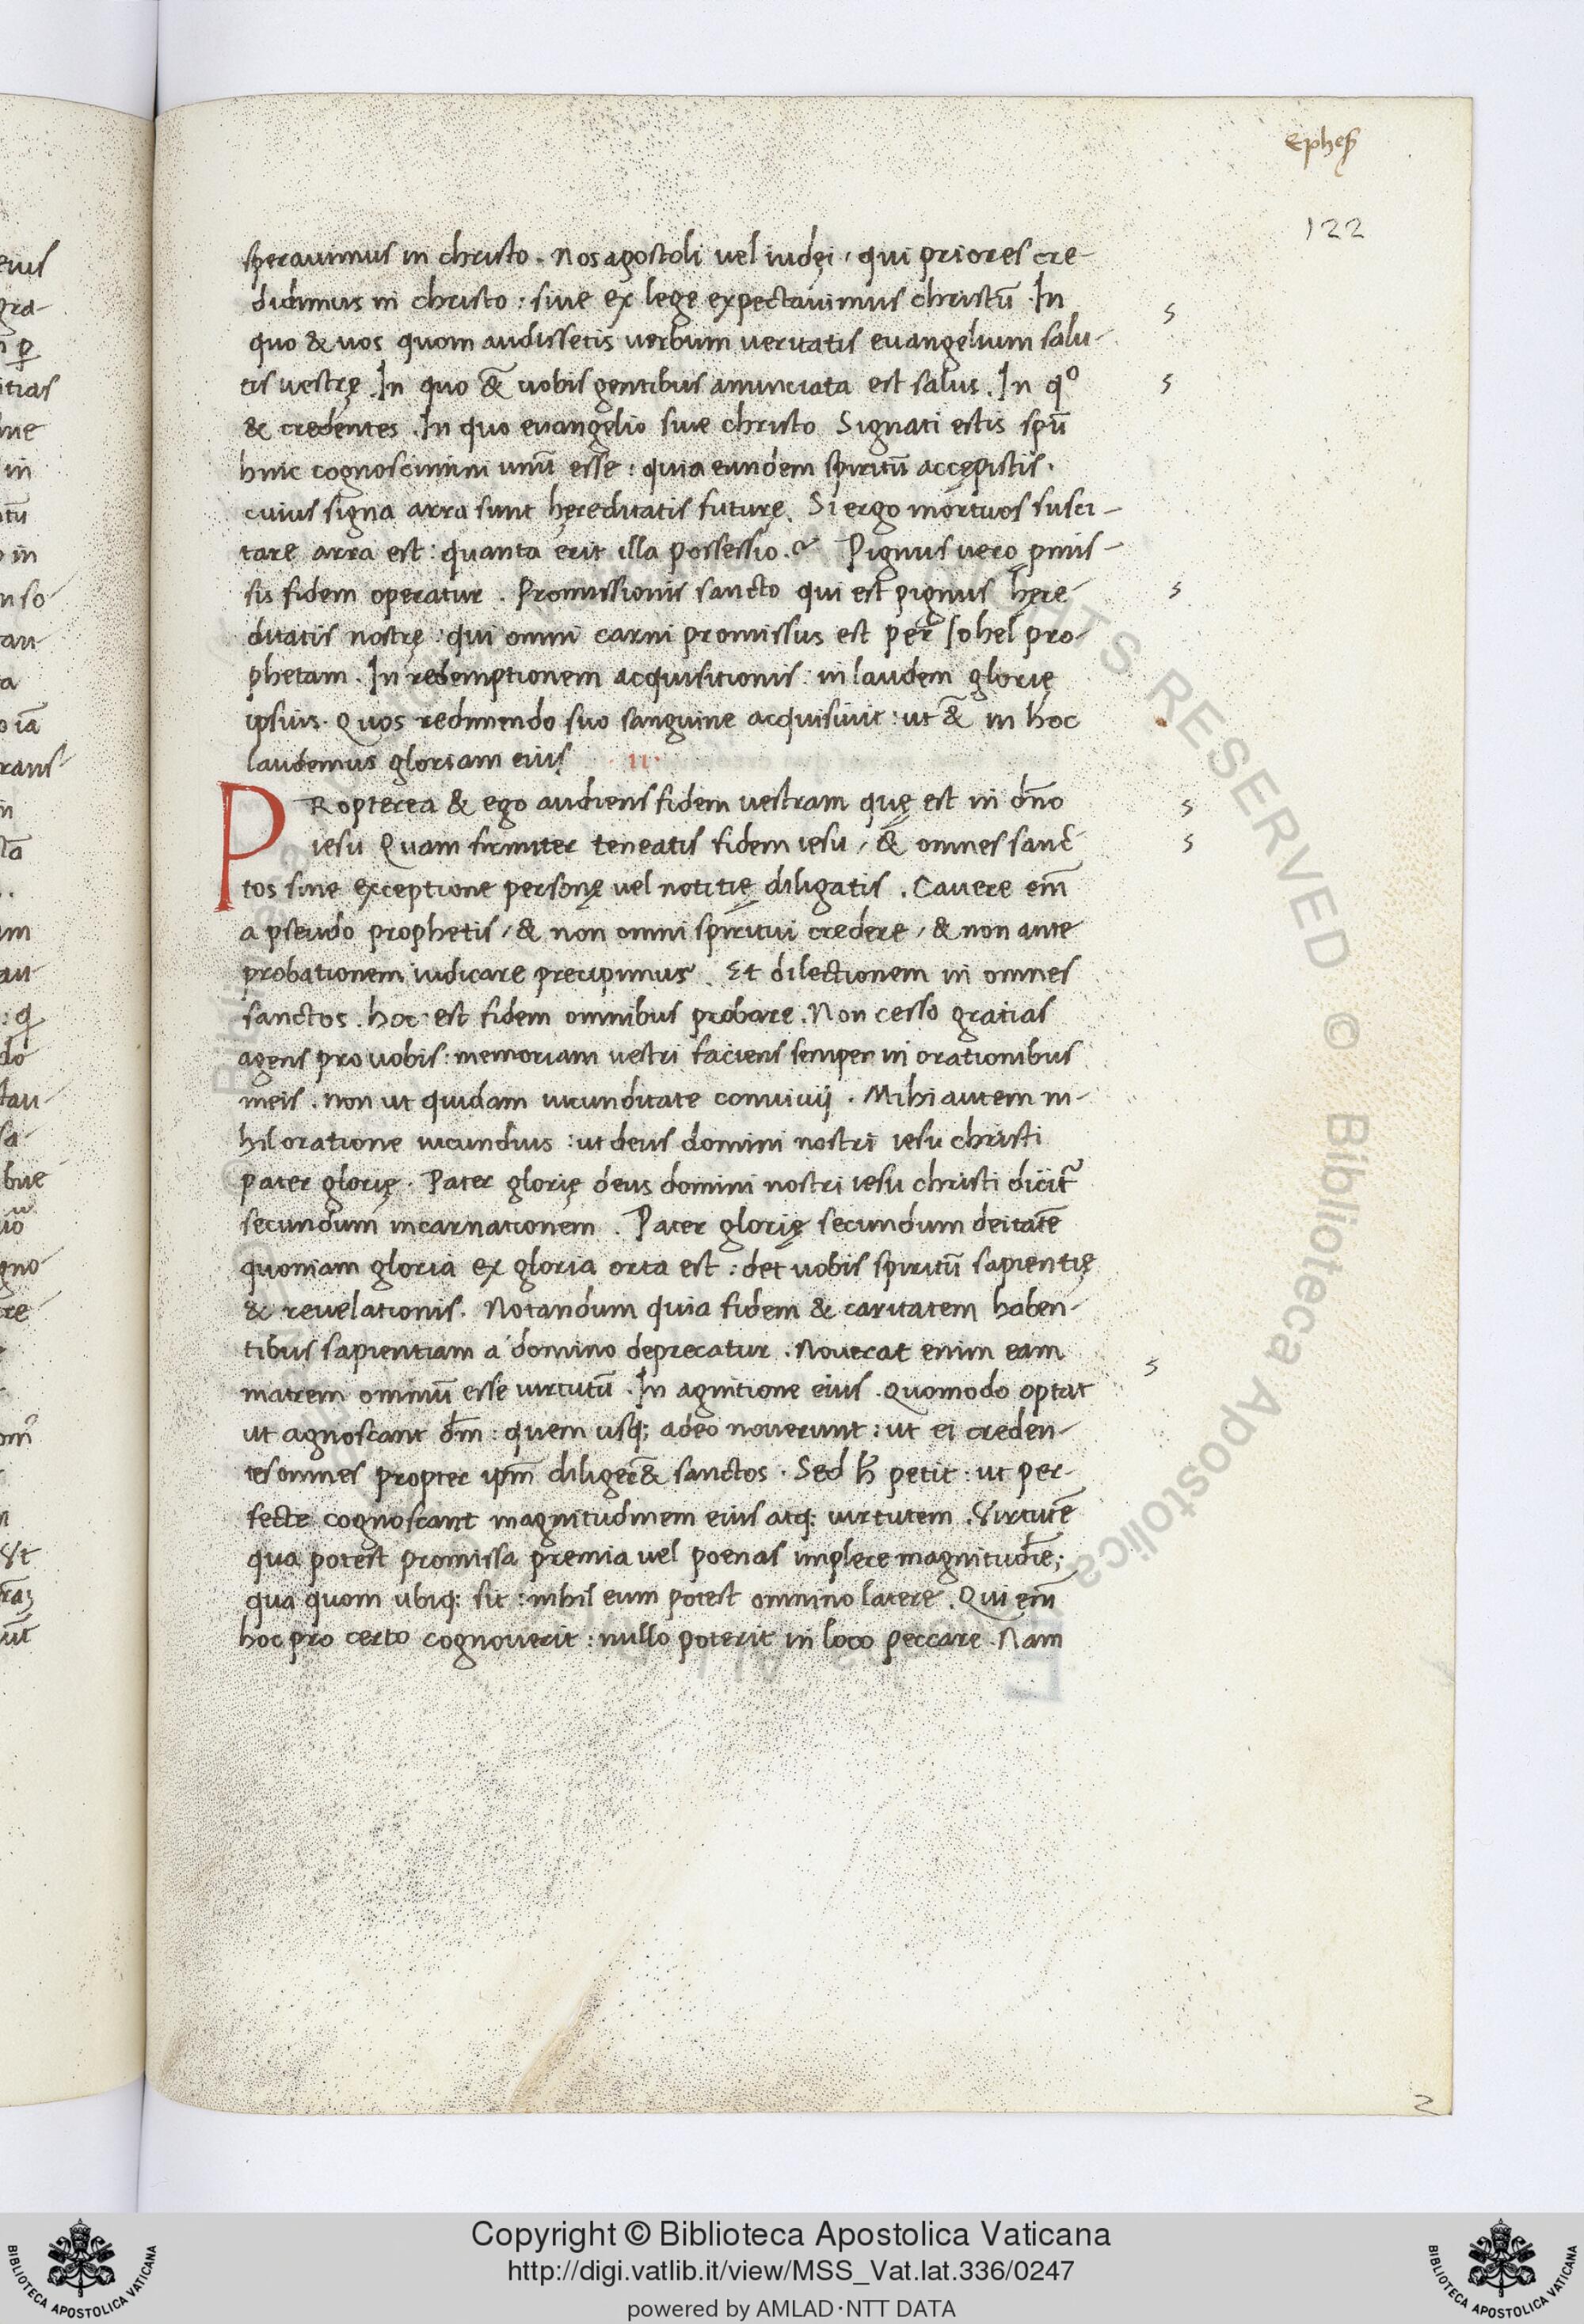 Ephes̄
122
sperauimus in christo. Nos apostoli uel iudęi, qui priores cre-
didimus in christo: siue ex lege expectauimus christū. In
quo & uos quom audissetis uerbum ueritatis euangelium salu-
tis uestrę. In quo &̄ uobis gentibus annunciata est salus. In qº
& credentes. In quo euangelio siue christo Signati estis spū
hinc cognoscimini unū esse: quia eundem spiritū accępistis.
cuius signa arra sunt hęreditatis futurę. Si ergo mortuos susci-
tare arra est: quanta erit illa possessio. Pignus uero pmis-
sis fidem operatur. Promissionis sancto qui est pignus hęre-
ditatis nostrę: qui omni carni promissus est per Iohel pro-
phetam. In redemptionem acquisitionis: in laudem glorię
ipsius. Quos redimendo suo sanguine acquisiuit: ut &̄ in hoc
laudemus gloriam eius. .II.
PRopterea & ego audiens fidem uestram quę est in dn̄o
iesu Quam firmiter teneatis fidem iesu, & omnes sanc-
tos sine exceptione personę uel notitię diligatis. Cauere em̄
a pseudo prophetis, & non omni spiritui credere, & non ante
probationem iudicare precipimus. Et dilectionem in omnes
sanctos. hoc est fidem omnibus probare. Non cesso gratias
agens pro uobis: memoriam uestri faciens semper in orationibus
meis. non ut quidam iucunditate conuiuij. Mihi autem ni-
hil oratione iucundius: ut deus domini nostri iesu christi
pater glorię. Pater glorię deus domini nostri iesu christi dicit̄
secundum incarnationem. Pater glorię secundum deitatē
quoniam gloria ex gloria orta est: det uobis spiritū sapientię
& reuelationis. Notandum quia fidem & caritatem haben-
tibus sapientiam a domino deprecatur. Nouerat enim eam
matrem omniū esse uirtutū. In agnitione eius. Quomodo optat
ut agnoscant dm̄: quem usq; adeo nouerunt: ut ei creden-
tes omnes propter ipm̄ diliger& sanctos. Sed h̄ petit: ut per-
fecte cognoscant magnitudinem eius atq; uirtutem. Virtutē
qua potest promissa premia uel poenas implere magnitudīe;
qua quom ubiq; sit: nihil eum potest omnino latere. Qui em̄
hoc pro certo cognouerit: nullo poterit in loco peccare. Nam
Copyright © Biblioteca Apostolica Vaticana
http://digi.vatlib.it/view/MSS_Vat.lat.336/0247
powered by AMLAD·NTT DATA